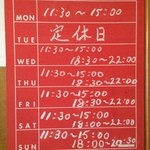 MON 11:30~15:00
TUE 定休日
WED 11:30~15:00
18:30~22:00
THU 11:30~15:00
18:30~22:00
FRI 11:30~15:00
18:30~22:00
SAT 11:30~15:00
18:00~22:00
SUN 11:30~15:00
18:00~